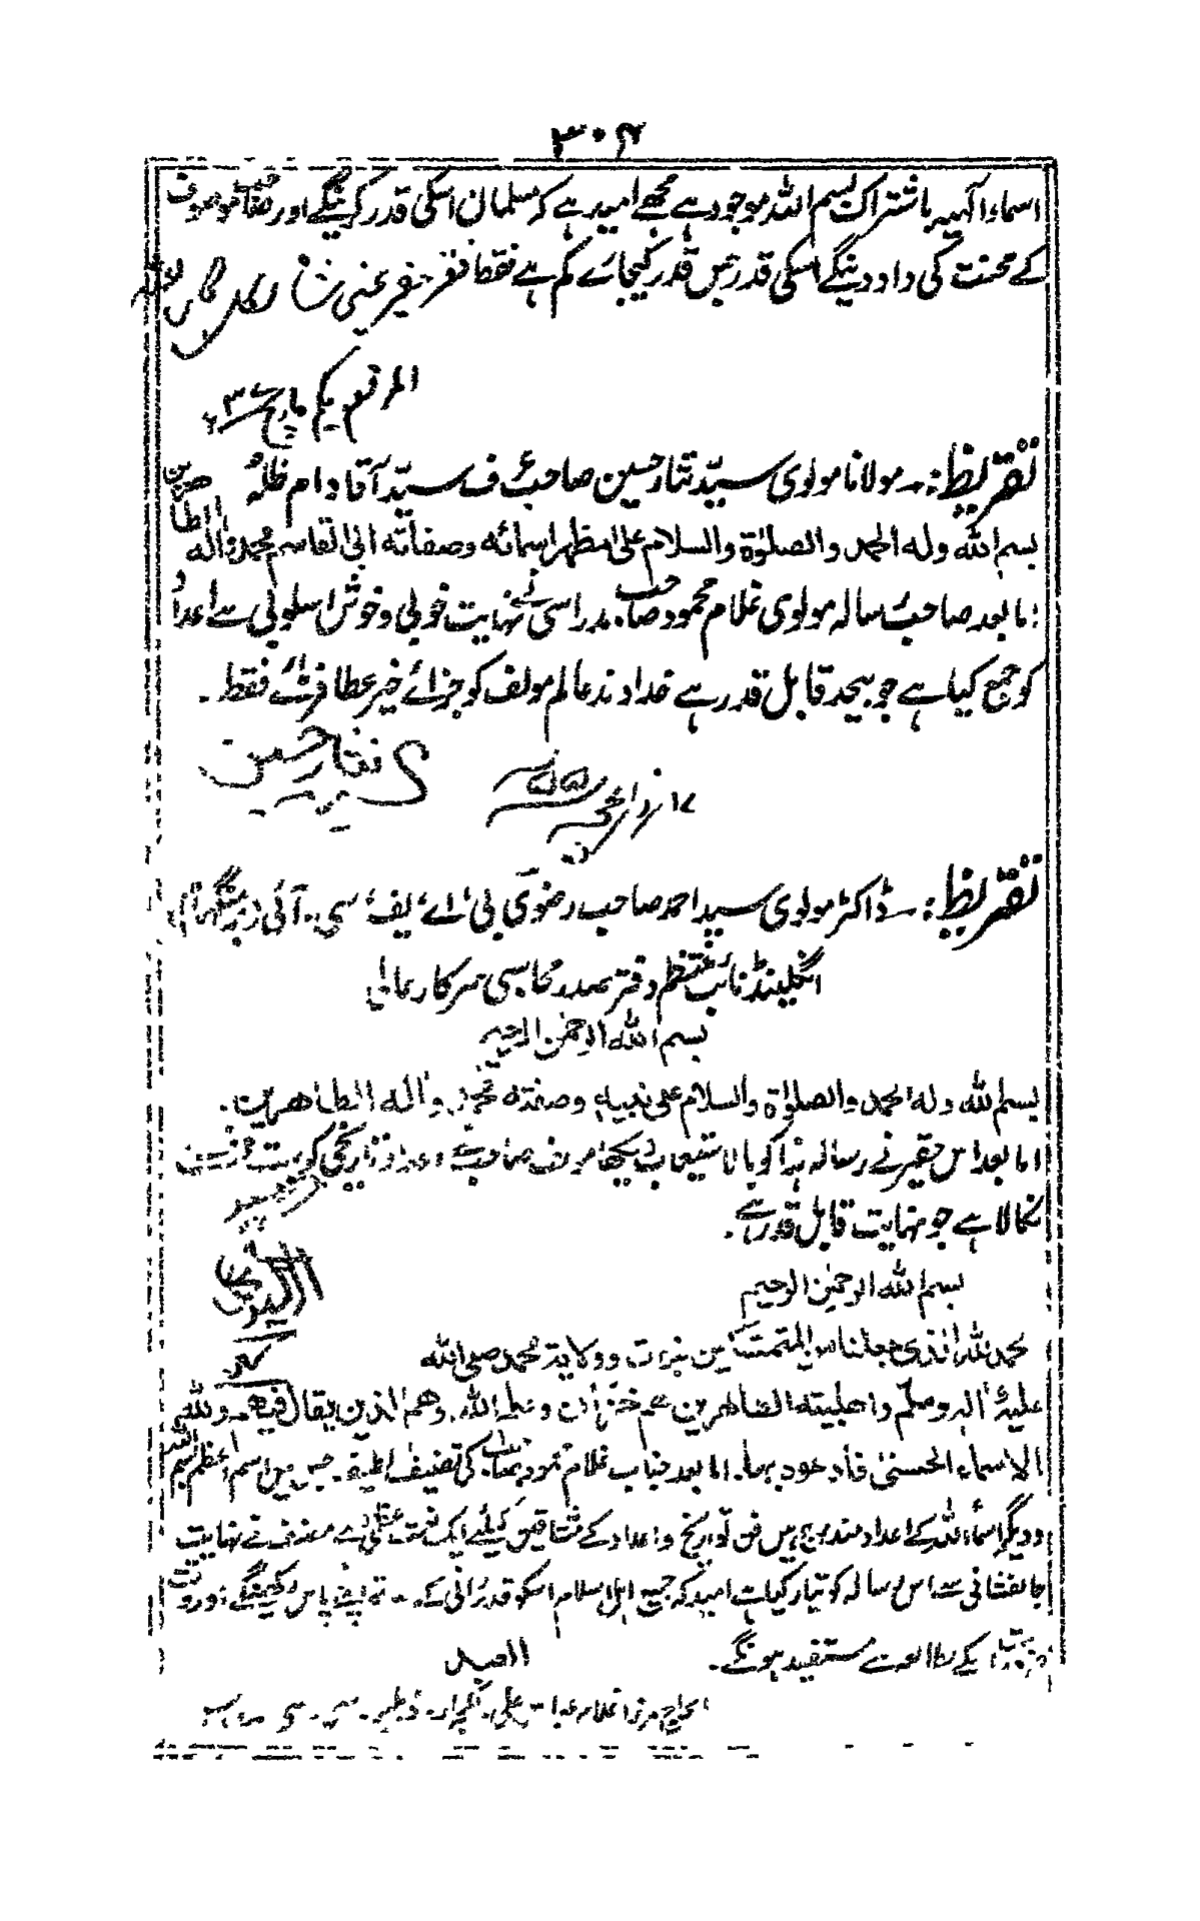 ۳۰۴
اسماء الٰہیہ باشتراک بسم اللہ موجود ہے مجھے امید ہے کہ مسلمان اسکی قدر کرینگے اور صاحب موصوف
کے محنت کی داد دینگے اسکی قدر جس قدر کیجائے کم ہے فقط فقیر حقیر غنی شاہ
المرقوم یکم مارچ ۳۷ء
تقریظ :۔ مولانا مولوی سیّد نثار حسین صاحب عُرف سیّد آقا دام ظلہٗ
بسم اللہ وله الحمد والصلوٰة والسلام علی مظهر اسمائه وصفاته ابی القاسم محمد واٰله الطاهرین
اما بعد صاحب رسالہ مولوی غلام محمود صاحب مدراسی نے نہایت خوبی و خوش اسلوبی سے اعداد
کو جمع کیا ہے جو بیحد قابل قدر ہے خداوند عالم مولف کو جزائے خیر عطا فرمائے فقط ۔
سید نثار حسین
۱۷ ذی الحجہ ۵۵
تقریظ :۔ ڈاکٹر مولوی سید احمد صاحب رضوی بی اے ایف سی۔ آئی (برمنگہام)
انگلینڈ نائب منتظم دفتر صدر محاسبی سرکار عالی
بسم الله الرحمٰن الرحیم
بسم الله وله الحمد والصلوٰة والسلام علی نبیه وصفته محمد واٰله الطاهرین۔
اما بعد اس حقیر نے رسالہ ہٰذا کو بالاستیعاب دیکھا مولف صاحب نے اعداد تاریخی کو بہت
نکالا ہے جو نہایت قابل قدر ہے ۔
بسم الله الرحمٰن الرحیم
الحمد لله الذی جعلنا من المتمسکین وولایة محمد صلی الله
علیه واٰله وسلم واهلبیته الطاهرین هم وهم الذین یقال فیهم ولله
الاسماء الحسنیٰ فادعوه بها۔ اما بعد جناب غلام محمود صاحب کی تصنیف لطیف۔ جس میں اسم اعظم بسم اللہ
و دیگر اسماء اللہ کے اعداد مندرج ہیں فن تواریخ و اعداد کے مشتاقین کیلئے ایک نعمت عظمیٰ ہے مصنف نے نہایت
جانفشانی سے اس رسالہ کو تیار کیا ہے امید کہ جمیع اہل اسلام اسکو قدردانی کے ساتھ اپنے پاس رکھینگے اور وقت
ضرورت اسکے مطالعہ سے مستفید ہونگے ۔
العبد
الحاج مرزا غلام عباس علی